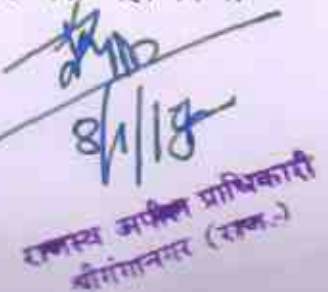 8/1/18
राजस्व अपील प्राधिकारी
श्रीगंगानगर (राज.)